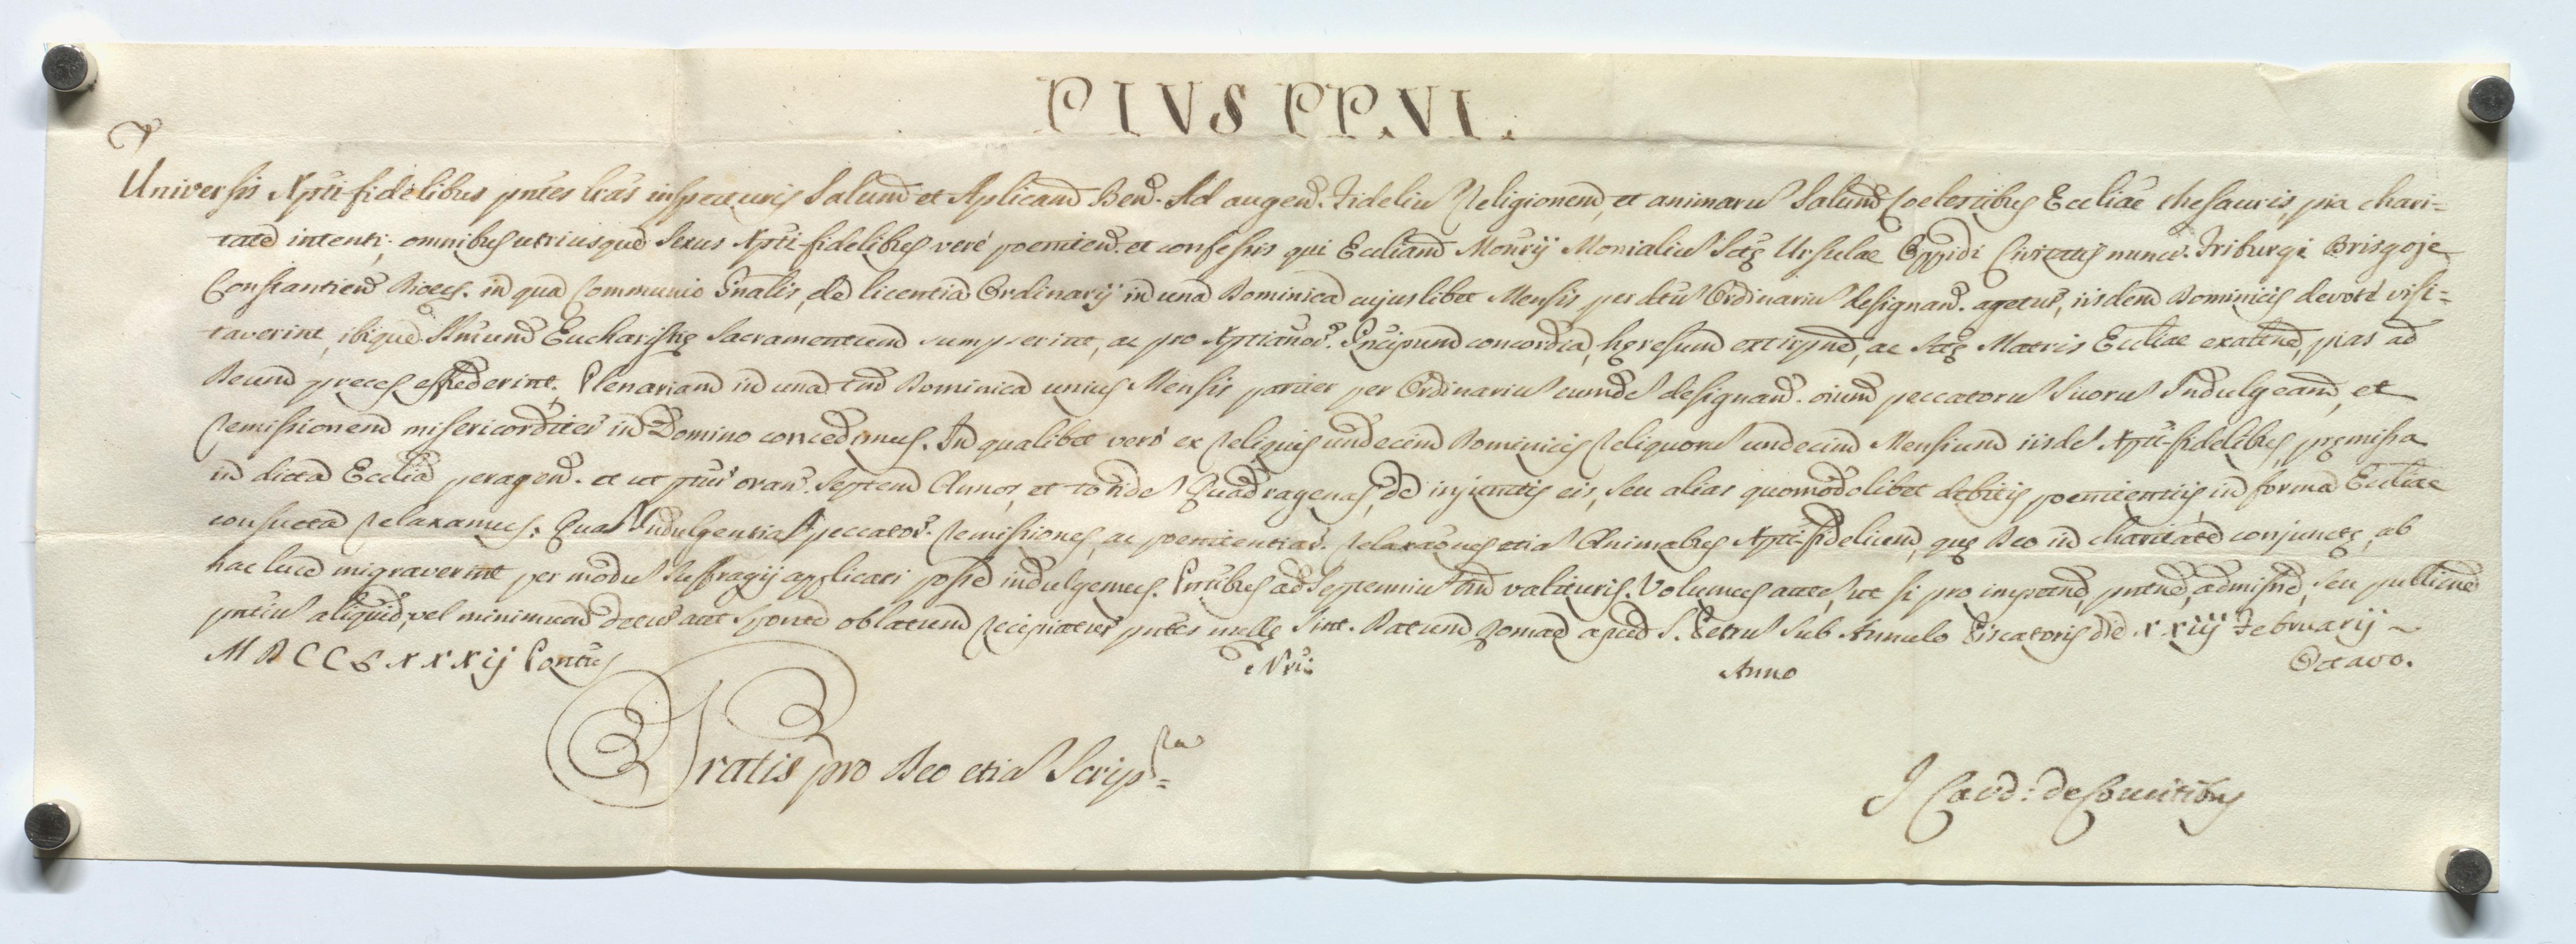 PIUS PP. VI.
Universis Xpti fidelibus pntes lras inspecturis Salutem et Aplicam Ben. Ad augen. Fideliu Religionem, et animaru Salutem Coelestibus Eccliae thesauris, pia chari=
tate intenti; omnibus utriusque Sexus Xpti-fidelibus verè poeniten. et confessis qui Eccliam Monrij Monialiu Sctę Ursulae Oppidi Civitatis nuncu. Friburgi Brisgoje
Constantien Dioeces. in qua Communio Gnalis, de licentia Ordinarij in una Dominica cujuslibet Mensis per dtu Ordinariu designan. agetur, iisdem Dominicis devotè visi=
taverint, ibique Smum Eucharistię Sacramentum sumpserint, ac pro Xptianor. Pncipum concordia, hęresum extirpne, ac Stę Matris Eccliae exaltne, pias ad
Deum preces effuderint; Plenariam in una tm Dominica unius Mensis pariter per Ordinariu eumde designan. oium peccatoru Suoru Indulgeam, et
remissionem misericorditer in Domino concedimus. In qualibet verò ex reliquis undecim Dominicis reliquoru undecim Mensium iisde Xpti-fidelibus, pręmissa
in dicta Ecclia peragen. et ut ptur oran. Septem Annos, et totide Quadragenas, de injunctis eis, seu alias quomodolibet debitis poenitentiis, in forma Eccliae
consueta relaxamus. Quas Indulgentias peccator. remissiones, ac poenitentiar. relaxaones etia Animabus Xpti fidelium, quę Deo in charitate conjunctę, ab
hac luce migraverint per modu Suffragij applicari posse indulgemus. Pntibus ad Septenniu tm valituris. Volumus aute, ut si pro impetrne, pntne, admissne, seu publicne
pntiu aliquid, vel minimum detur aut sponte oblatum recipiatur pntes nullę Sint. Datum Romae apud S. Petru Sub Annulo Piscatoris die xxiij Februarij ~
MDCCLXXXIJ Pontus Nri: Anno Octavo.
Gratis pro Deo etia Scripra=
I Card: de Comitibus